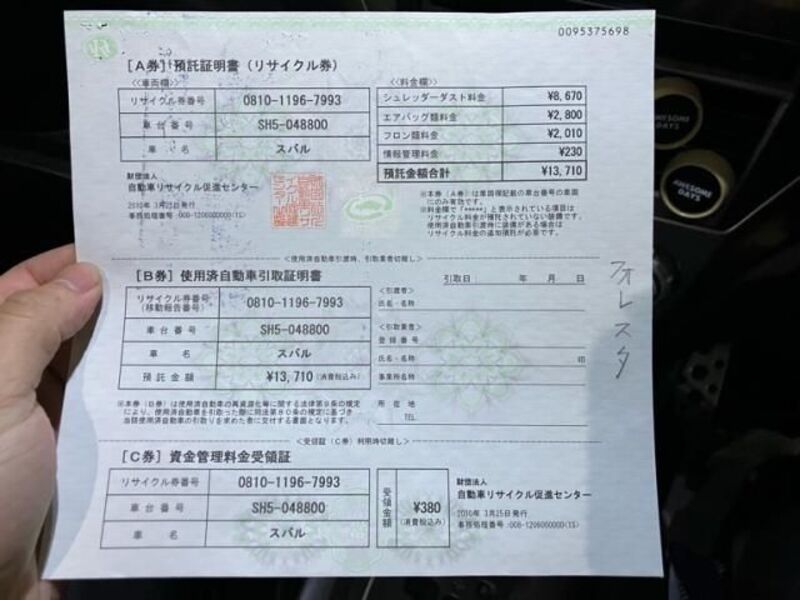 0095375698
[A券] 預託証明書 (リサイクル券)
<<車両欄>>
リサイクル券番号 0810-1196-7993
車台番号 SH5-048800
車名 スバル
<<料金欄>>
シュレッダーダスト料金 ¥8,670
エアバッグ類料金 ¥2,800
フロン類料金 ¥2,010
情報管理料金 ¥230
預託金額合計 ¥13,710
財団法人
自動車リサイクル促進センター
2010年 3月25日発行
※本券(A券)は車両欄記載の車台番号の車両
にのみ有効です。
※料金欄で「*****」と表示されている項目は
リサイクル料金が預託されていない装備です。
使用済自動車引渡時に装備がある場合は
リサイクル料金の追加預託が必要です。
<使用済自動車引渡時、引取業者切離し>
[B券] 使用済自動車引取証明書
リサイクル券番号
(移動報告番号) 0810-1196-7993
車台番号 SH5-048800
車名 スバル
預託金額 ¥13,710 (消費税込み)
引取日: 年 月 日
<引渡者>
氏名・名称
<引取業者>
登録番号
氏名・名称 印
事業所名称
所在地
TEL
※本券(B券)は使用済自動車の再資源化等に関する法律第9条の規定
により、使用済自動車を引取った際に同法第80条の規定に基づき
当該使用済自動車の引取りを求めた者に交付する書面となります。
フォレスタ
<受領証(C券)利用時切離し>
[C券] 資金管理料金受領証
リサイクル券番号 0810-1196-7993
車台番号 SH5-048800
車名 スバル
受領金額 ¥380
(消費税込み)
財団法人
自動車リサイクル促進センター
2010年 3月25日発行
AWESOME
DAYS
AWESOME
DAYS